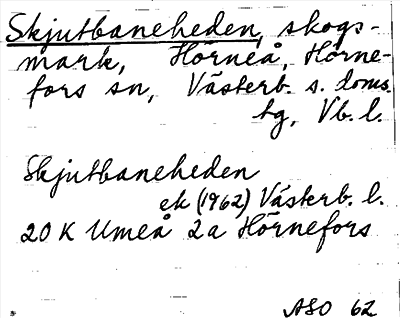 Skjutbaneheden, skogs-
mark, Hörneå, Hörne-
fors sn, Västerb. s. doms.
tg, Vb. l.
Skjutbaneheden
ek (1962) Västerb. l.
20 K Umeå 2a Hörnefors
ASO 62